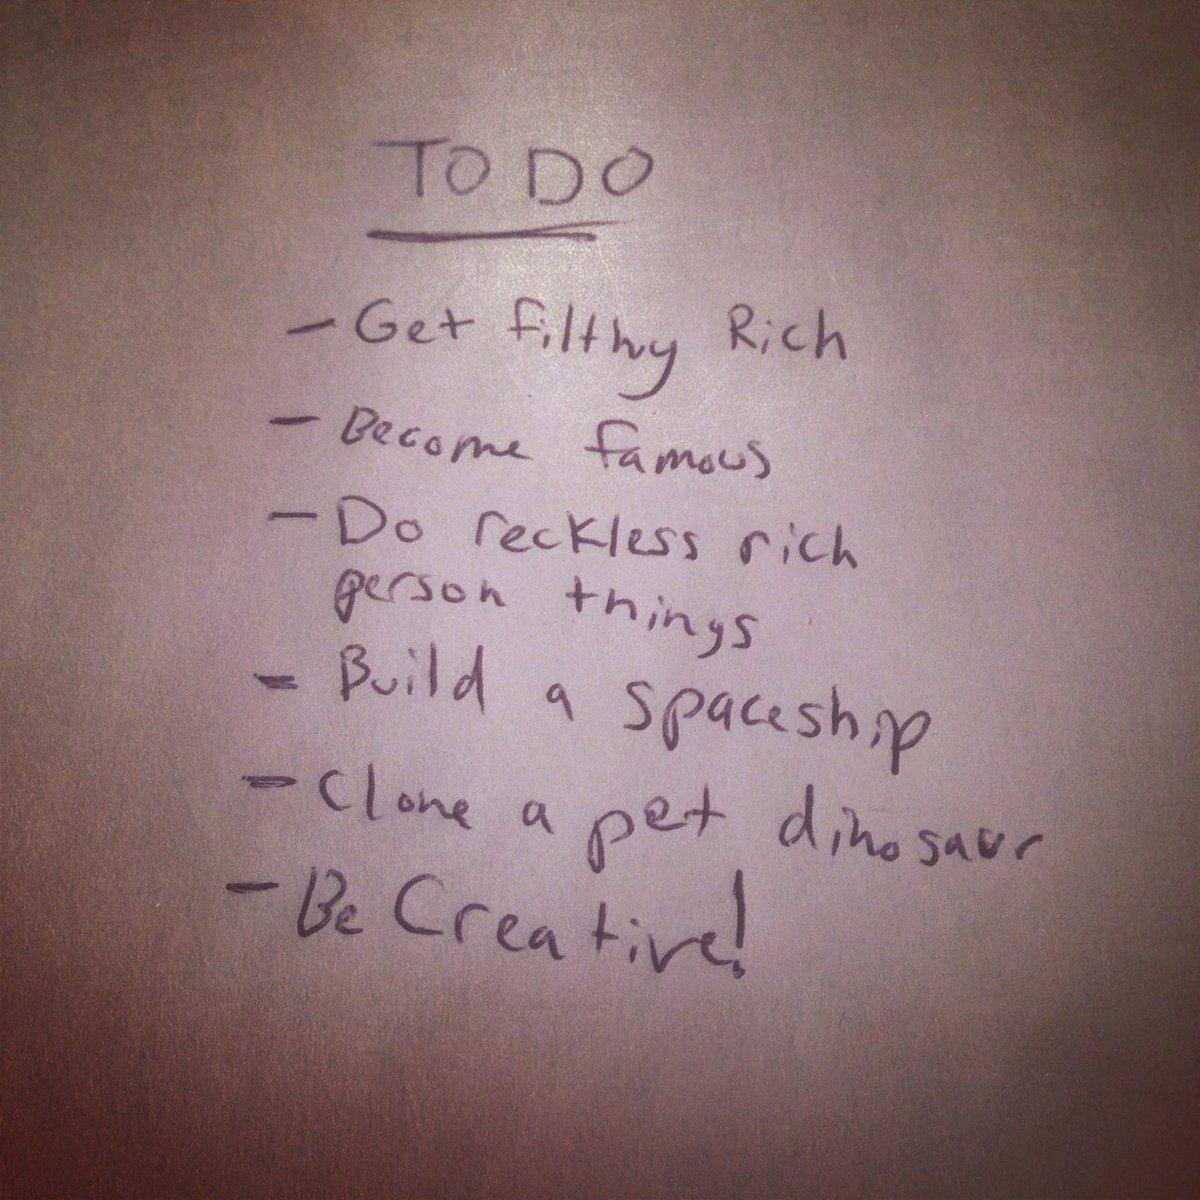 TO DO
- Get filthy Rich
- Become famous
- Do reckless rich
person things
- Build a spaceship
- Clone a pet dinosaur
- Be Creative!